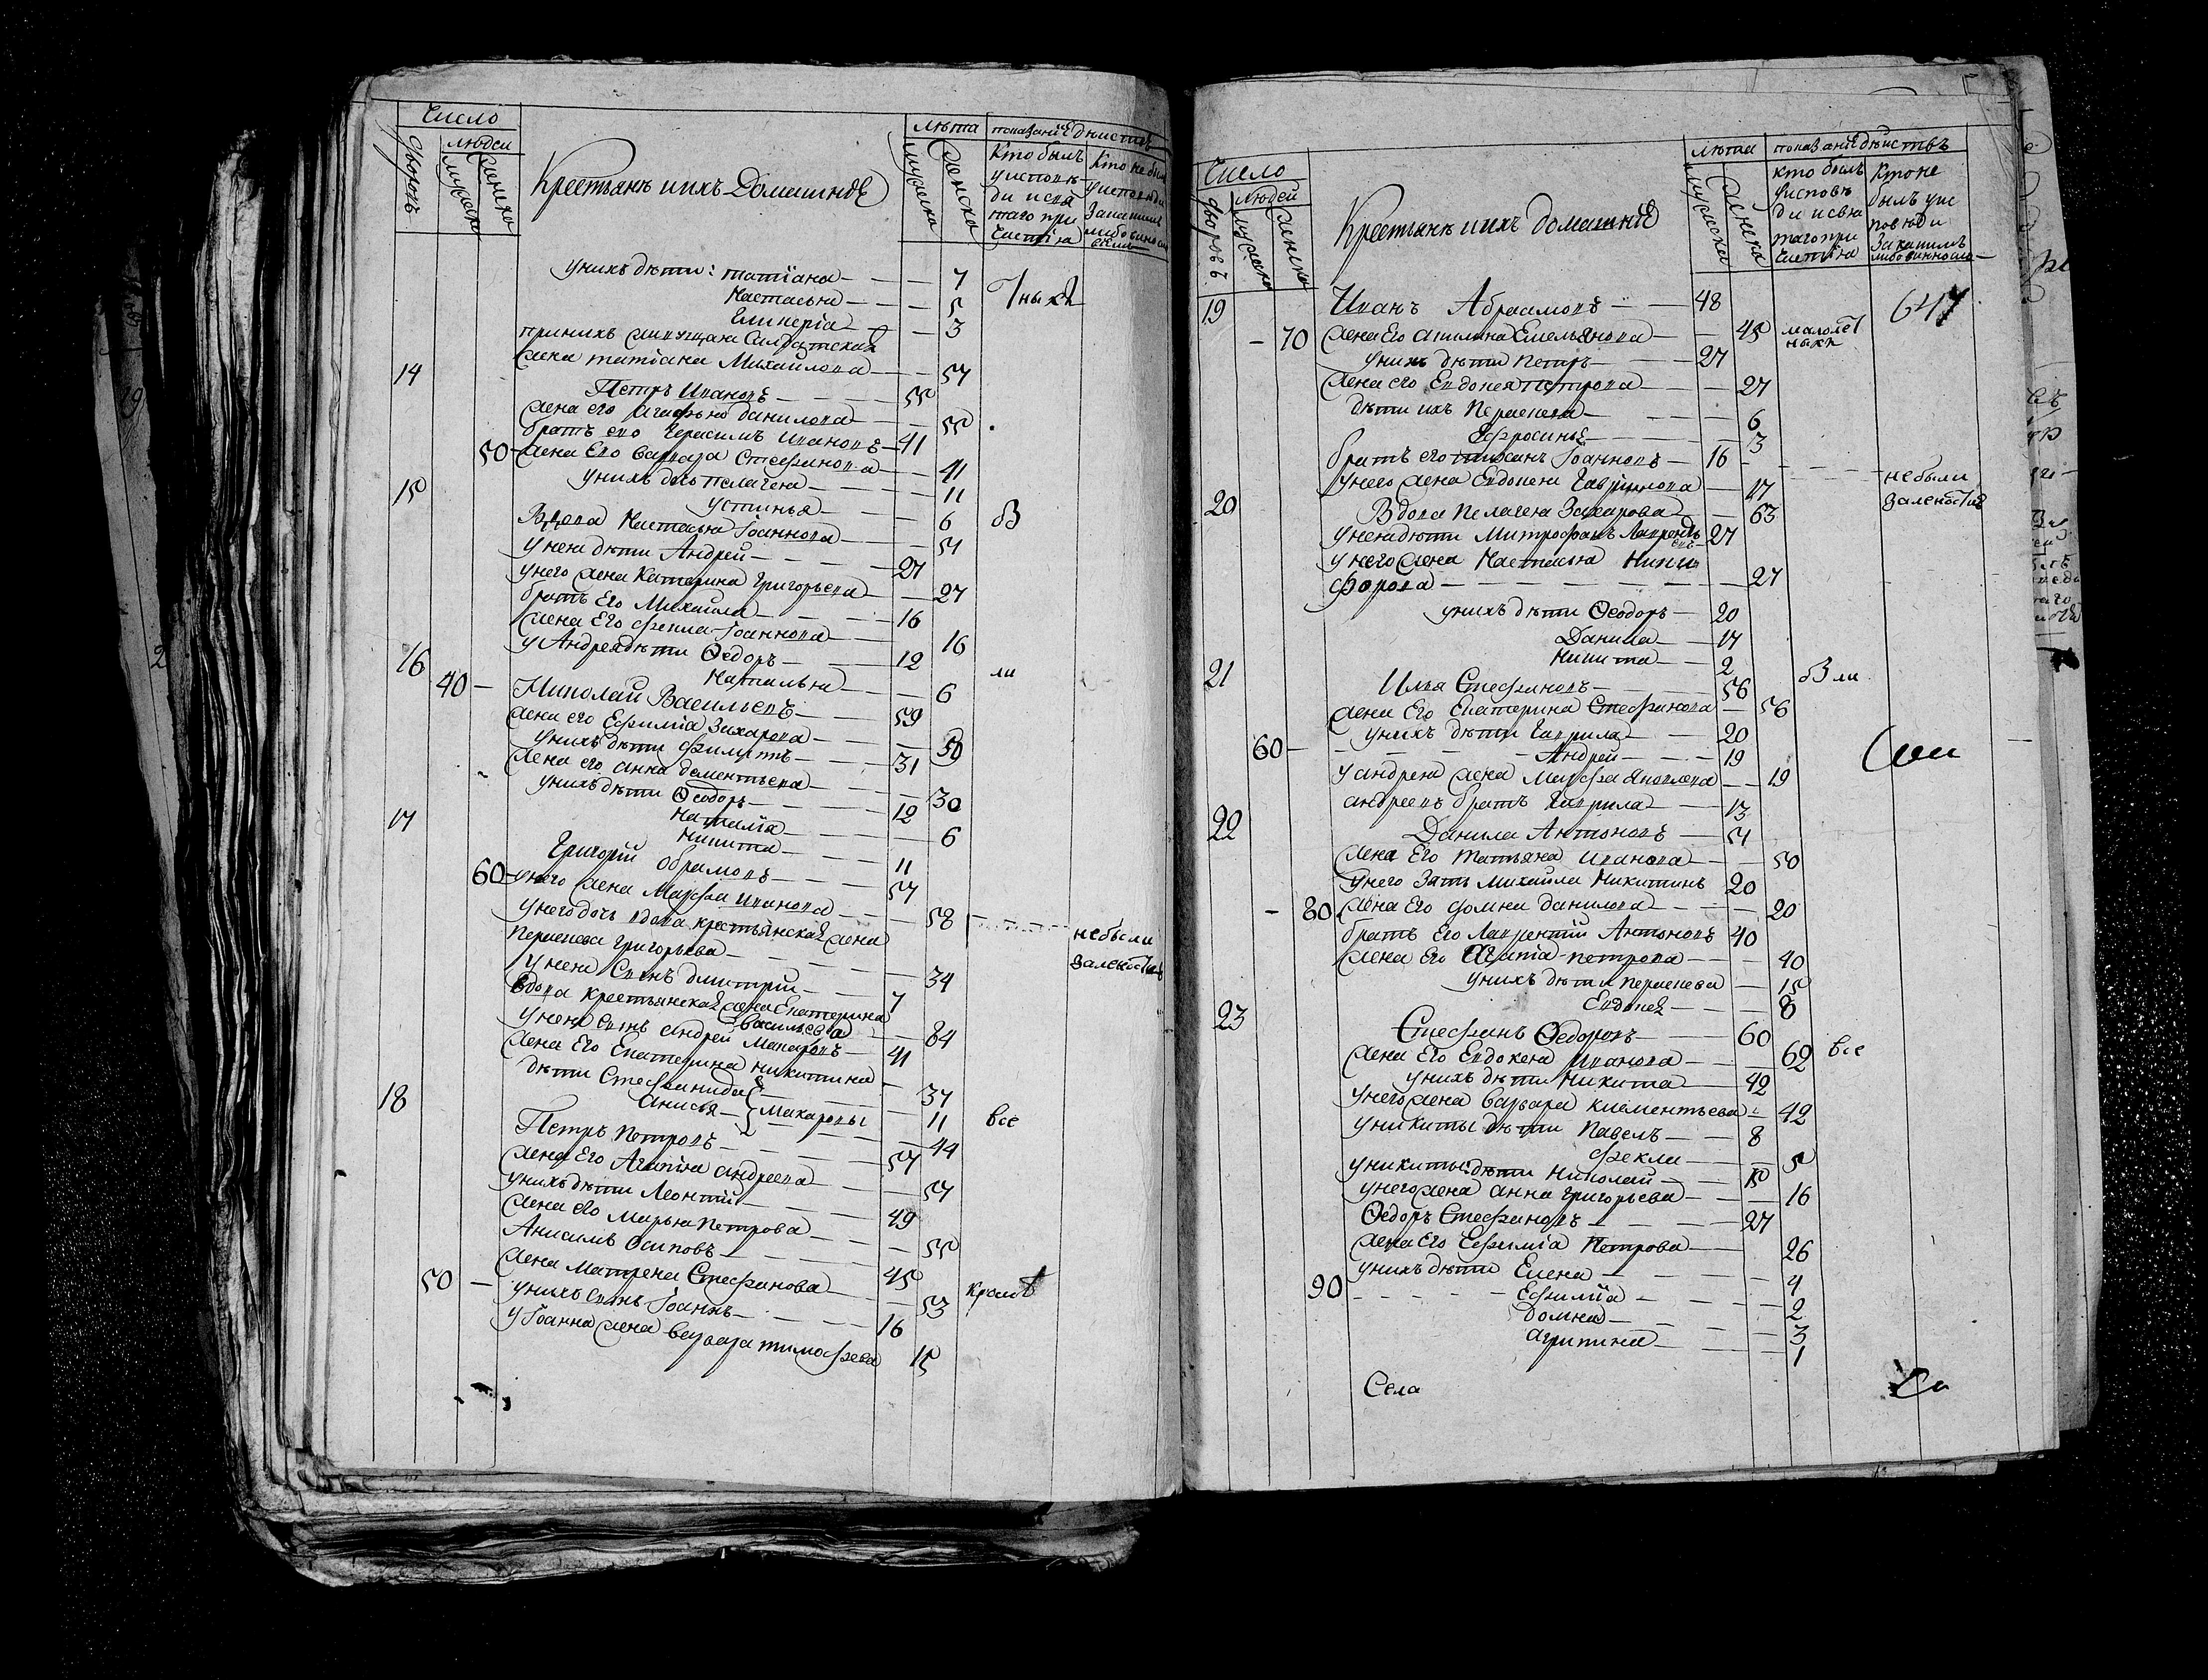 Число
людей
дворовъ
мужска
женска
Крестьянъ ихъ Домашнiе
лѣта
мужска
женска
показанiе дѣйствъ
Кто былъ
у исповѣ-
ди и свя
таго при
частiя
Кто не был
у исповѣди
За какимъ
либо виносло
уnихъ дѣти: татiана — 7
ныхъ
Настасья — 5
Гликерiа — 3
при нихъ живущая Салдатская
жена татiана Михайлова — 57
14 Петръ Ивановъ — 55
жена его Агафья данилова — 55
братъ его Герасимъ Ивановъ — 41
50 — жена Его варвара Стефанова — 41
у нихъ дѣти пелагея — 11
15 устинья — 6
В
Вдова Настасья Iоаннова — 51
у неи дѣти Андрей — 27
у него жена Катерина Григорьева — 27
братъ Его Михайла — 16
жена Его фекла Iоаннова — 16
у Андрея дѣти Ѳедоръ — 12
Наталья — 6
ли
16 40 — Николай Васильевъ — 59
жена его Ефимiа Захарова — 50
у нихъ дѣти филиппъ — 31
жена его анна дементьева — 30
у нихъ дѣти Ѳеодоръ — 12
Наталiа — 6
17 Никита — 11
Григорiй Обрамовъ — 57
60 — у него жена Марфа Иванова — 58
у него дочь вдова крестьянская жена
не были
Пераскева Григорьева — 34
у неи Сынъ димитрiй — 7
Вдова крестьянская жена Екатерина
васильева — 84
у нея сынъ андрей Макаровъ — 41
жена Его Екатерина никитина — 37
дѣти Стефанида — 11
Анисья — Макаровы — 44
18 Петръ Петровъ — 57
все
жена Его Агапiя андреева — 57
у нихъ дѣти Леонтiй — 49
жена его Марья Петрова — 55
Анисимъ Осиповъ — 45
жена Матрена Стефанова — 53
50 — у нихъ сынъ Iоаннъ — 16
кромѣ
у Iоанна жена варвара тимофеева 15
Число
людей
дворовъ
мужска
женска
Крестьянъ ихъ домашнiе
лѣта
мужска
женска
показанiе дѣйствъ
кто былъ
у исповѣ
ди и свя
таго при
частiя
Кто не
былъ у ис
повѣди
За какимъ
647
19 Иванъ Абраамовъ — 48
— 70 жена Его акилина Емельянова — 45
малолѣт
ныхъ
у нихъ дѣти Петръ — 27
жена его Евдокея петрова — 27
дѣти ихъ Пераскева — 6
Ефросинья — 3
братъ его Iоанновъ — 16
не были
у него жена Евдокея Гаврилова — 17
20 Вдова Пелагея Захарова — 63
у неи дѣти Митрофанъ Лаврентъ
евъ — 27
у него жена Настасья Ники
форова — 27
у нихъ дѣти Ѳеодоръ — 20
Данила — 17
Никита — 2
21 Илья Стефановъ — 56
В ли
жена Его Екатерина Стефанова — 56
у нихъ дѣти Гаврила — 20
60 — Андрей — 19
у андрея жена Марфа Яковлева — 19
андреевъ братъ Гаврила — 13
22 Данила Антоновъ — 51
жена Его татьяна иванова — 50
у него Зять Михайла Никитинъ 20
— 80 жена Его фомна данилова — 20
братъ Его Лаврентiй Антоновъ 40
жена Его Агапiа петрова — 40
у нихъ дѣти Пераскева — 15
Евдокея — 8
23 Стефанъ Ѳедоровъ — 60
все
жена Его Евдокея Иванова — 62
у нихъ дѣти Никита — 42
у него жена варвара климентьева — 42
у никиты дѣти Павелъ — 8
фекла — 5
у никиты дѣти николай — 15
у него жена анна григорьева — 16
Ѳедоръ Стефановъ — 27
жена Его Ефимiа Петрова — 26
у нихъ дѣти Елена — 4
90 — Ефимiа — 2
домна — 3
агрипина — 1
Села